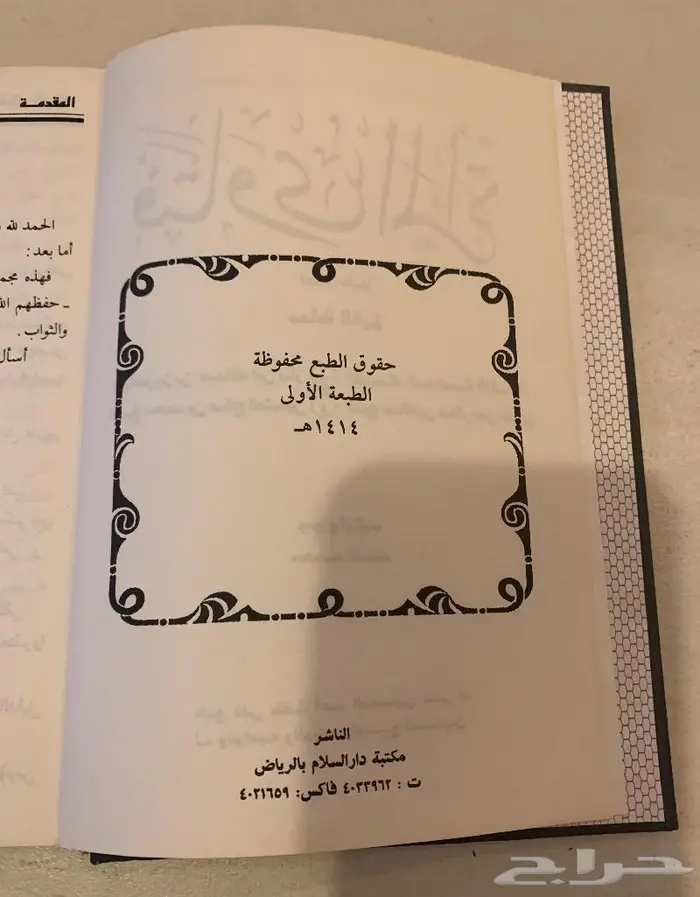 حقوق الطبع محفوظة
الطبعة الأولى
١٤١٤هـ
الناشر
مكتبة دارالسلام بالرياض
ت : ٤٠٣٣٩٦٢ فاكس: ٤٠٢١٦٥٩
المقدمـة
الحمد لله
أما بعد :
فهذه مجم
ـ حفظهم الله
والثواب .
أسأل
حراج